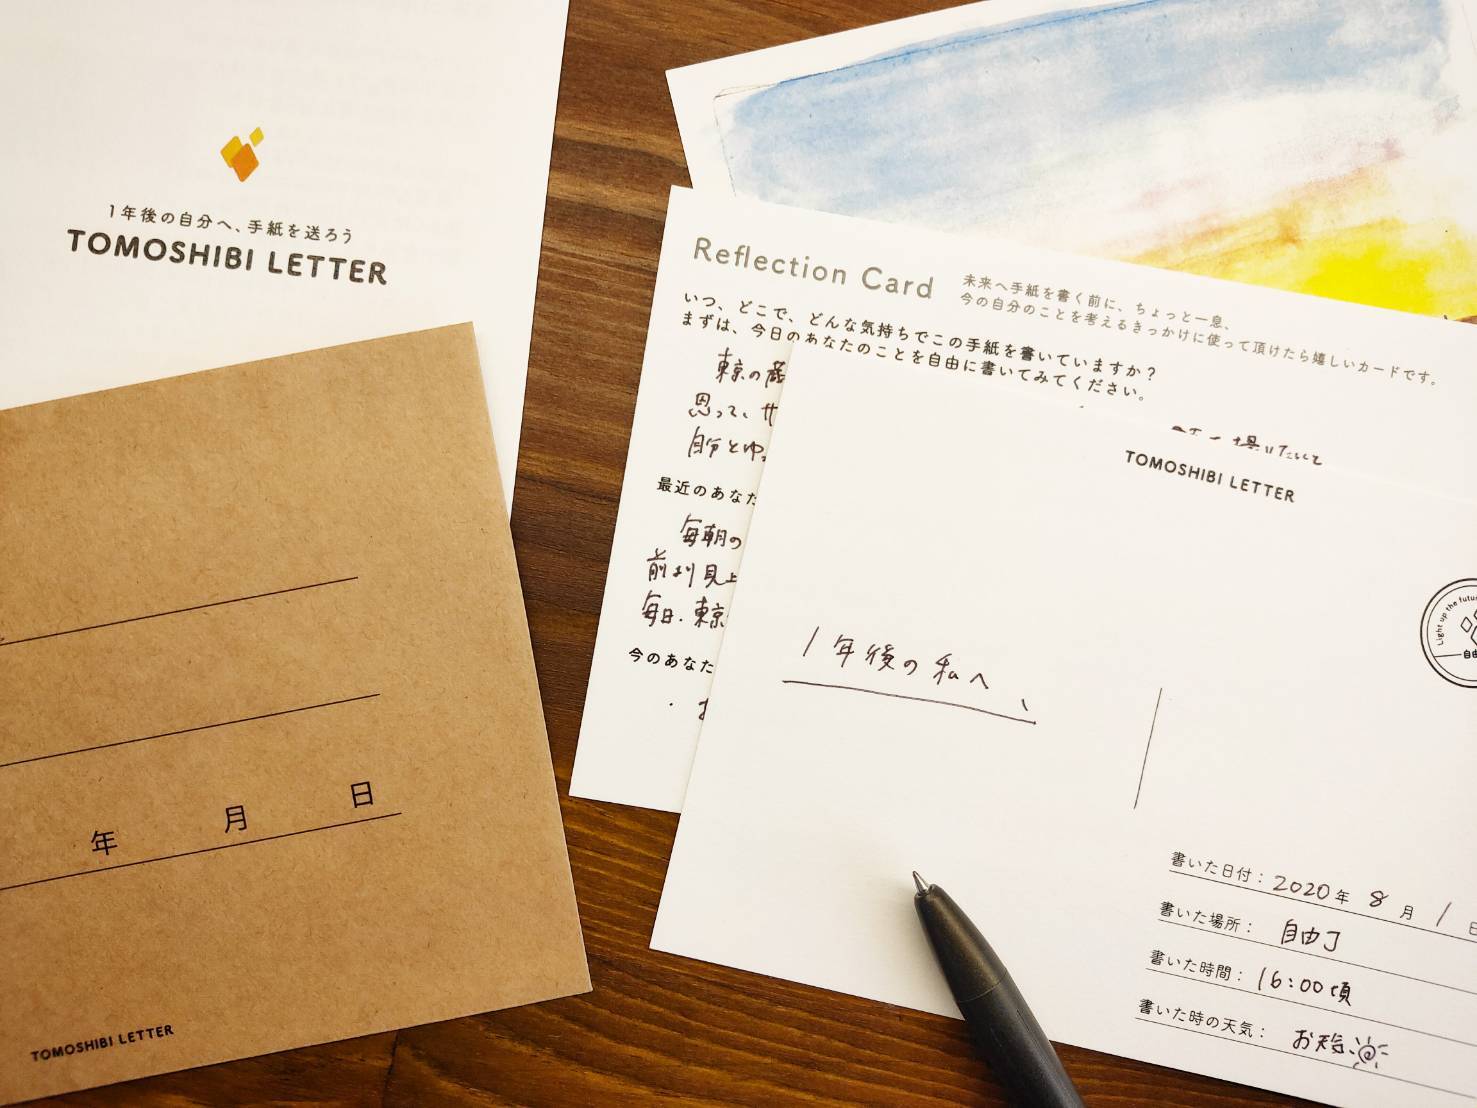 1年後の自分へ、手紙を送ろう
TOMOSHIBI LETTER
年 月 日
TOMOSHIBI LETTER
Reflection Card
未来へ手紙を書く前に、ちょっと一息、
今の自分のことを考えるきっかけに使って頂けたら嬉しいカードです。
いつ、どこで、どんな気持ちでこの手紙を書いていますか？
まずは、今日のあなたのことを自由に書いてみてください。
東京の蔵
思って、せ
自分とゆ
最近のあなた
毎朝の
前より見上
毎日、東京
今のあなた
TOMOSHIBI LETTER
Light up the futu
自由
1年後の私へ、
書いた日付：2020年 8月 1日
書いた場所：自由丁
書いた時間：16:00頃
書いた時の天気：お天気